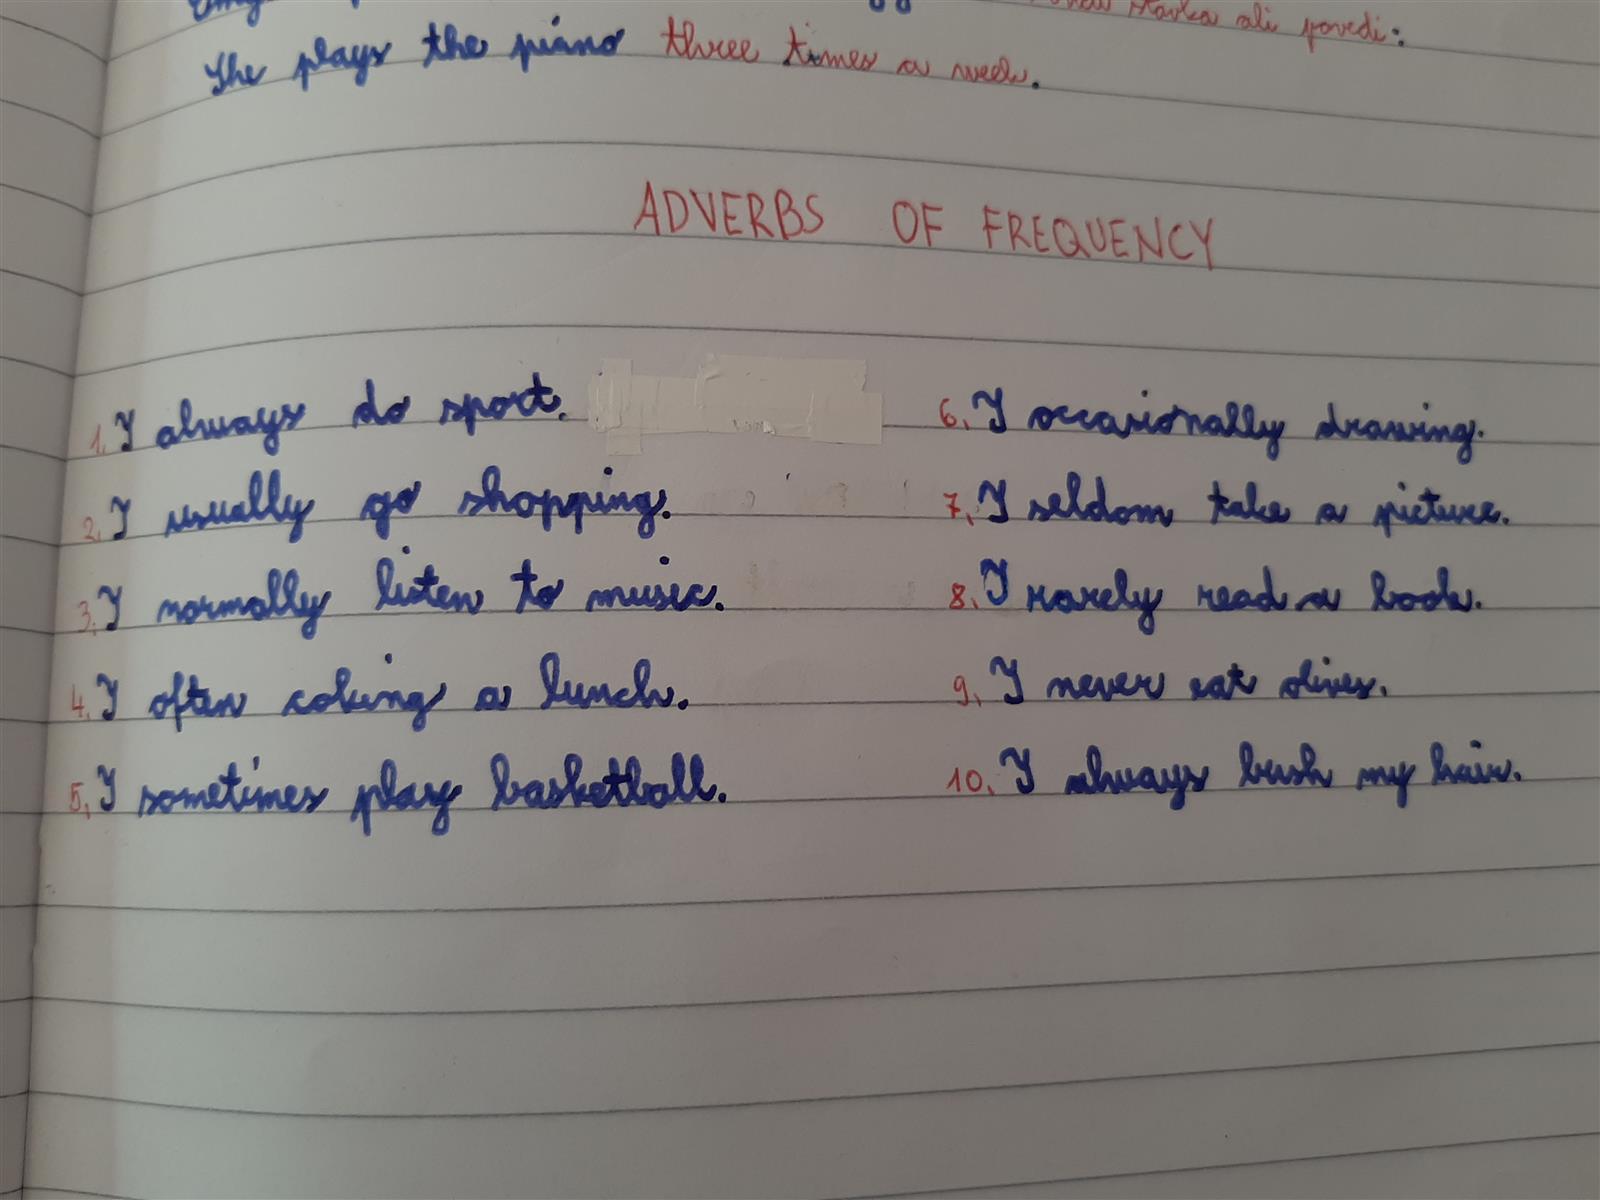 stavka ali povedi:
She plays the piano three times a week.
ADVERBS OF FREQUENCY
1. I always do sport.
2. I usually go shopping.
3. I normally listen to music.
4. I often coking a lunch.
5. I sometimes play basketball.
6. I occasionally drawing.
7. I seldom take a picture.
8. I rarely read a book.
9. I never eat olives.
10. I always brush my hair.